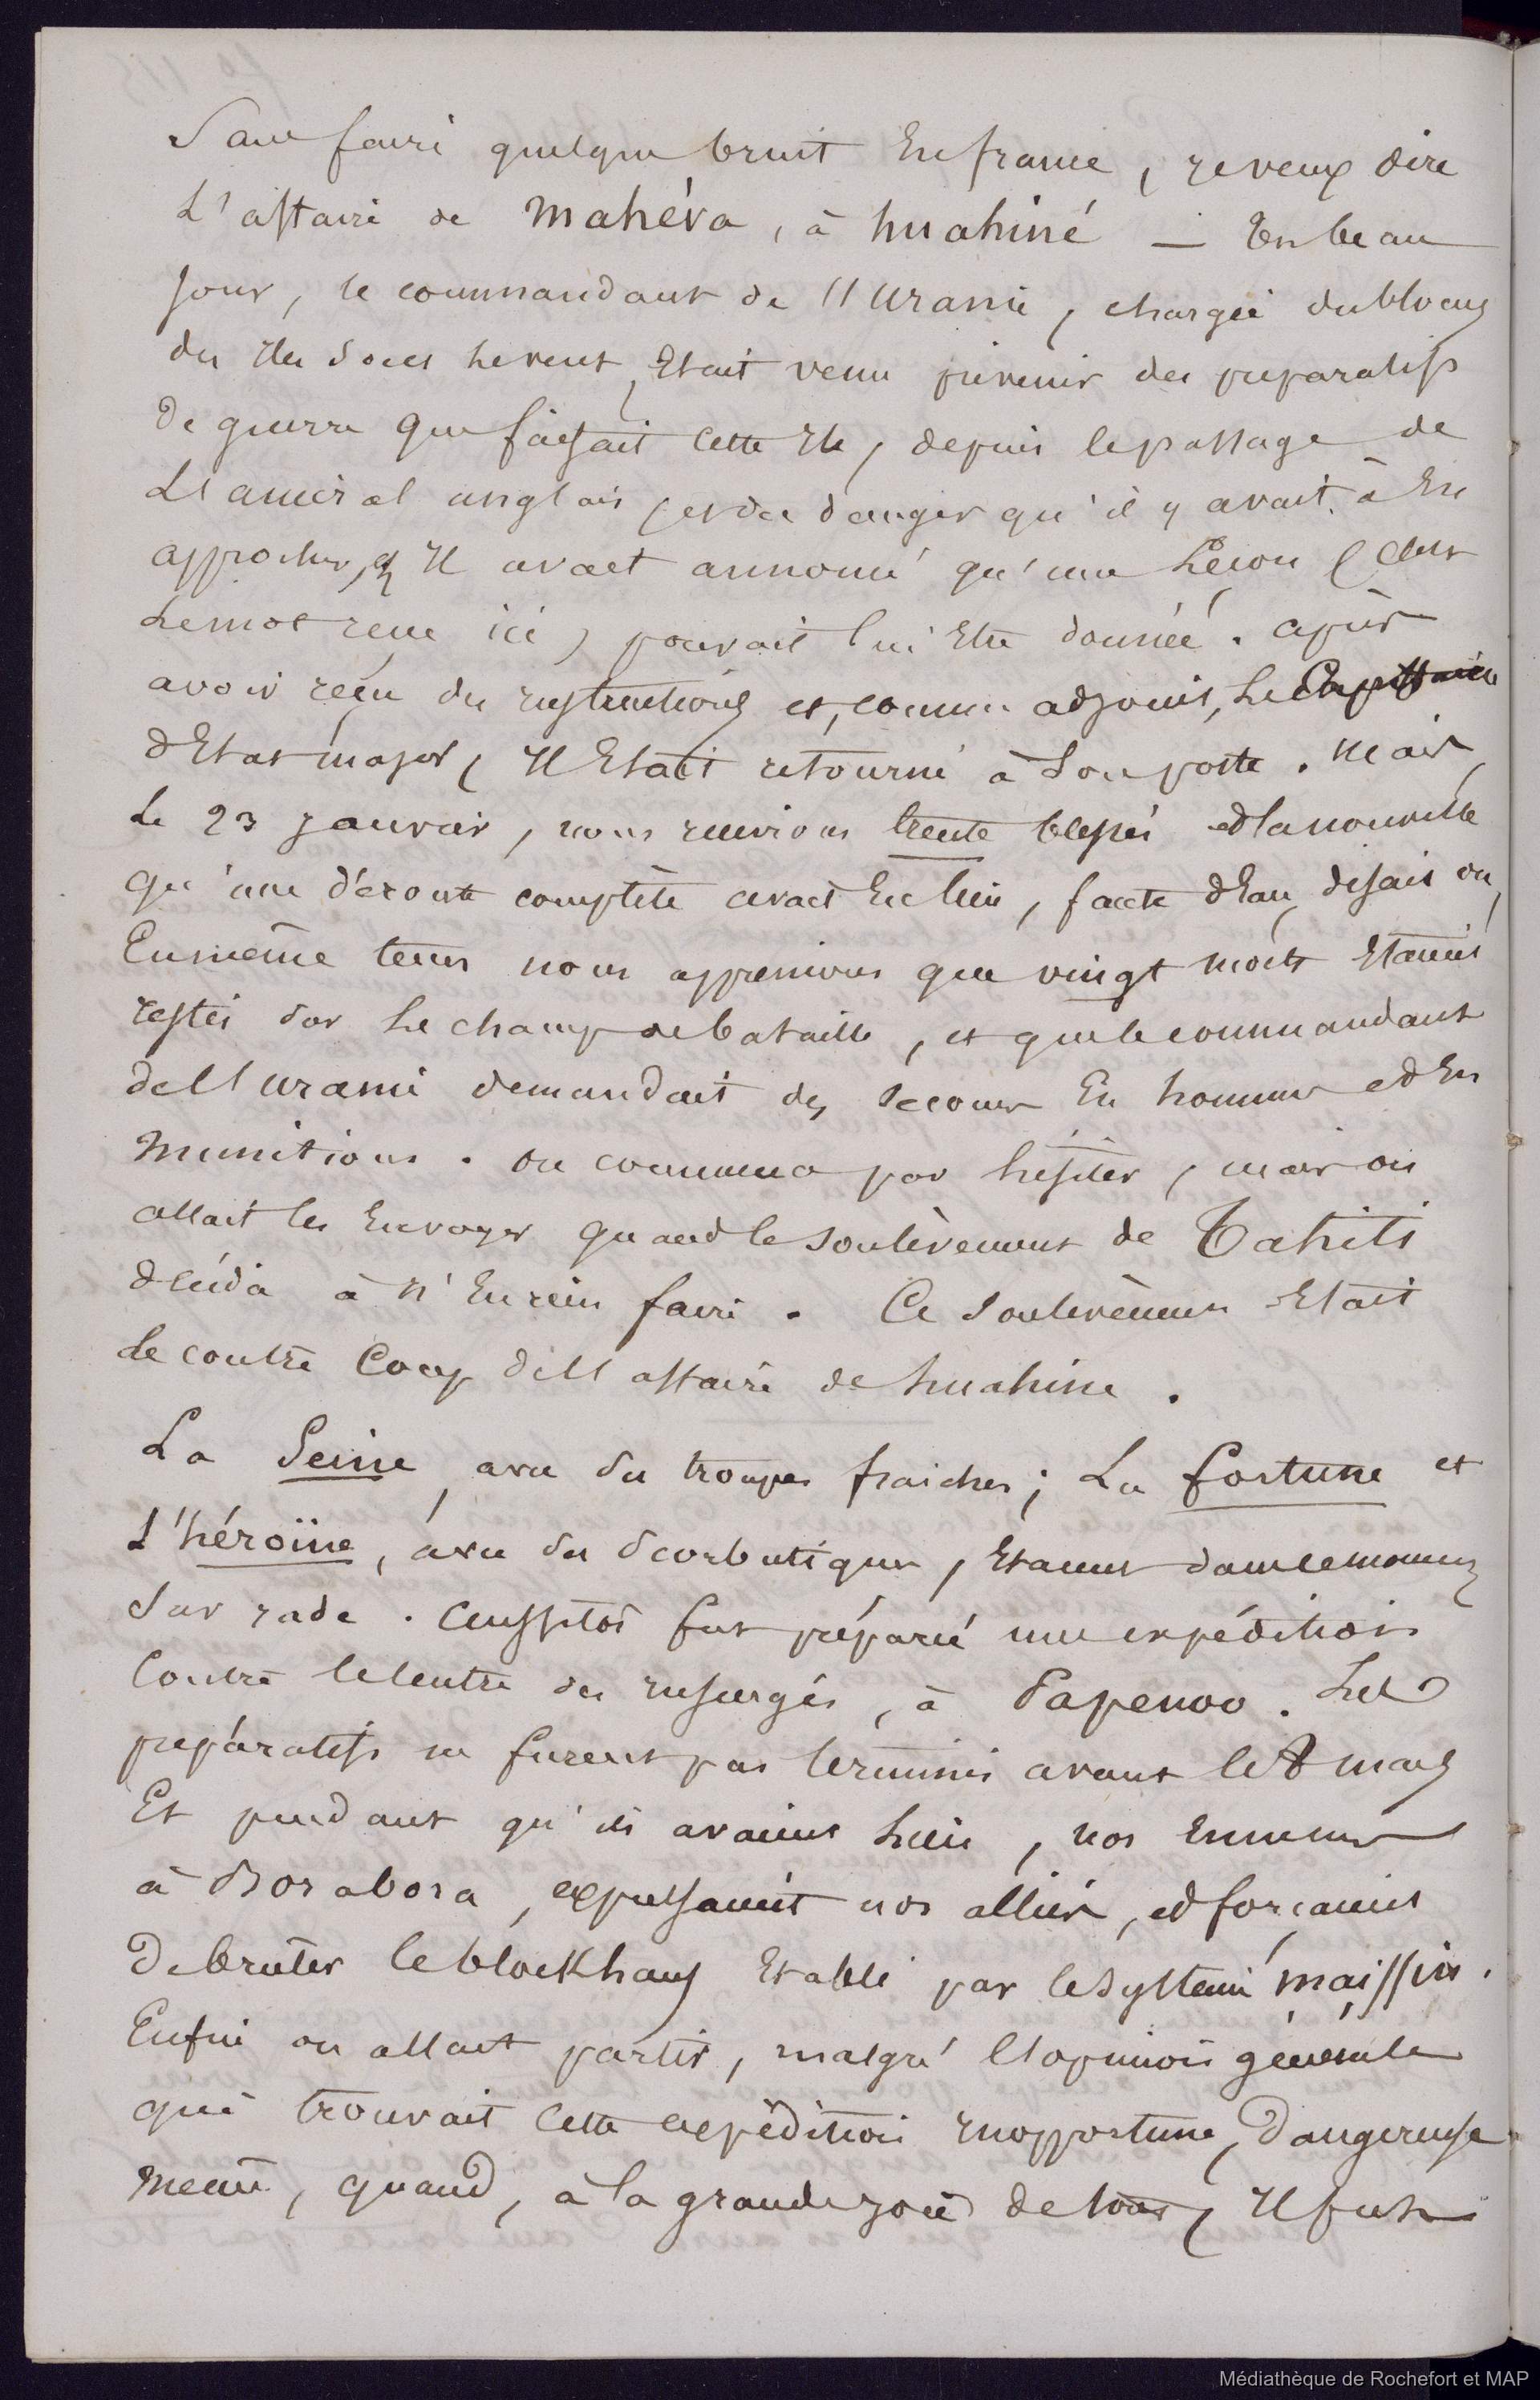 Sans faire quelque bruit En france, je veux dire
L'affaire de Mahéva, à huahiné — Un beau
jour, le commandant de l'uranie, chargée du blocus
des Iles sous le vent, Etait venu prévenir des préparatifs
de guerre que faisait cette Ile, depuis le passage de
L'amiral anglais, et du danger qu'il y avait à En
approcher, Il avait annoncé qu'une Leçon (C'est
Le mot reçu ici) pouvait lui Etre donnée. après
avoir reçu des instructions et, comme adjoint, Le Capitaine
d'Etat major, Il Etait retourné à son poste. Mais,
Le 23 janvier, nous recevions trente blessés et la nouvelle
qu'une déroute complète avait Eu lieu, faute d'Eau, disait on,
En même tems nous apprenions que vingt morts Etaient
restés sur Le champ de bataille, et que le commandant
de l'uranie demandait des secours En hommes et En
munitions. on commença par hésiter, mais on
allait les Envoyer quand le soulèvement de Tahiti
décida à n'En rien faire. Ce soulèvement Etait
Le contre Coup de l'affaire de huahine.
La Seine, avec des troupes fraiches; La fortune et
L'héroïne, avec des scorbutiques, Etaient dans ce moment
sur rade. aussitôt fut préparée une expédition
Contre le centre des insurgés, à Papenoo. Les
préparatifs ne furent pas terminés avant le 8 mars
Et pendant qu'ils avaient lieu, nos Ennemis
à Borabora, expulsaient nos alliés, et forçaient
de bruler le blockhaus Etabli par le système maissin.
Enfin on allait partir, malgré l'opinion générale
qui trouvait cette expédition inopportune, dangereuse
même, quand, à la grande joie de tous, Il fut
Médiathèque de Rochefort et MAP